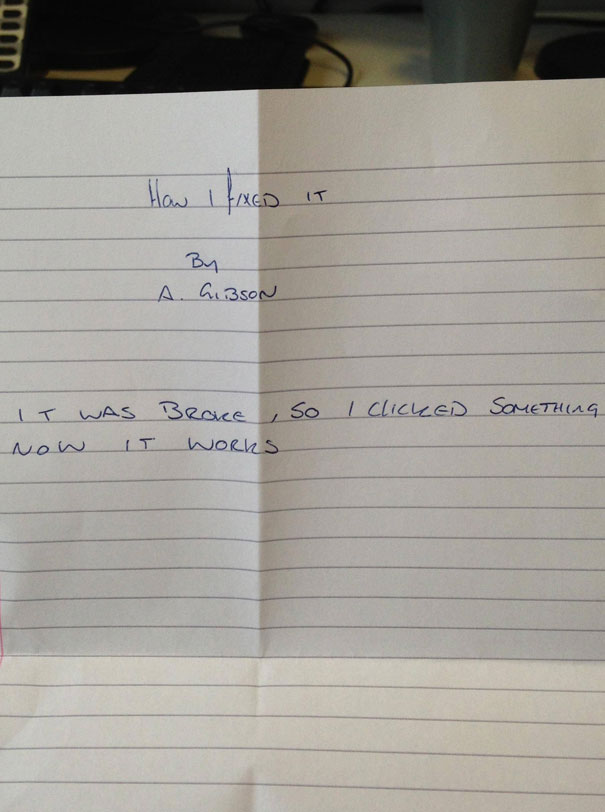 How I fixED IT
By
A. GIBSON
IT WAS BROKE, SO I CLICKED SOMETHING
NOW IT WORKS